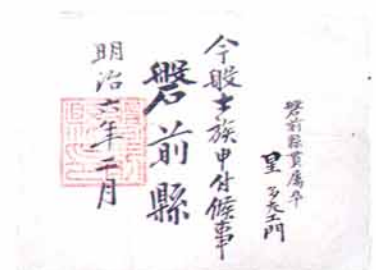 磐前縣貫属卒
星 多左エ門
今般士族申付候事
磐前縣
明治六年二月